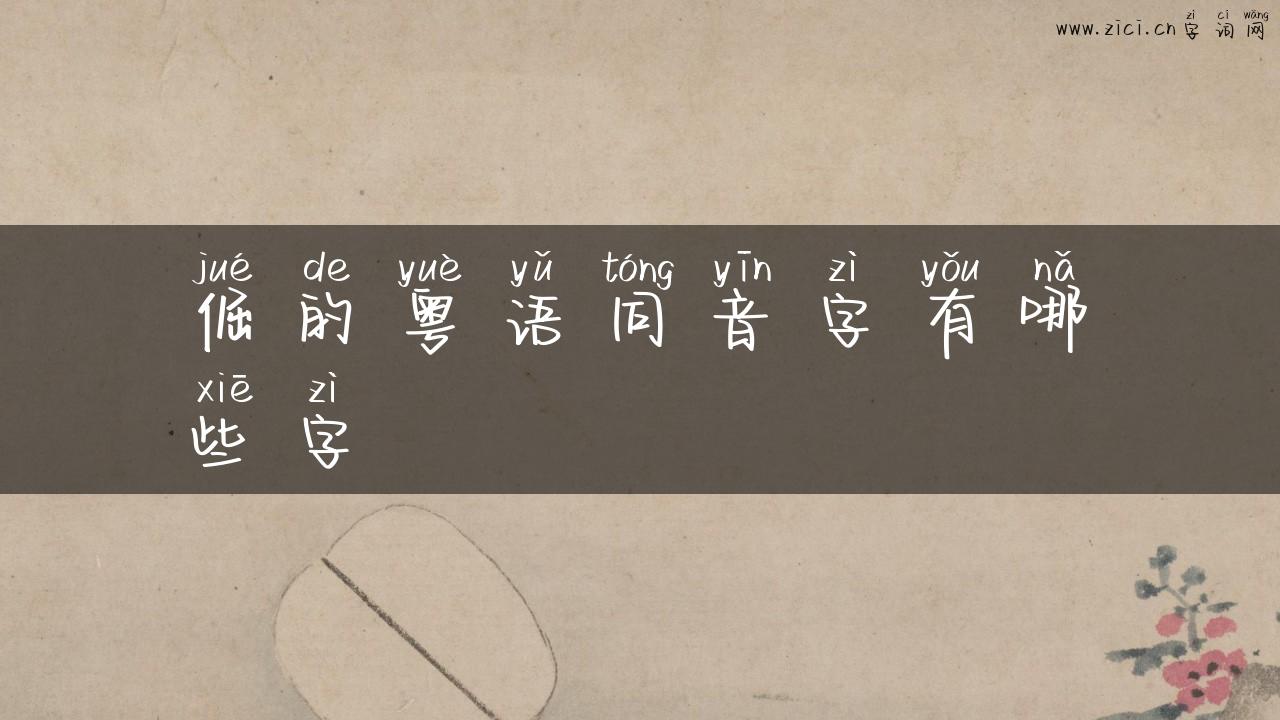 zì cí wǎng
www.zici.cn字词网
jué de yuè yǔ tóng yīn zì yǒu nǎ
倔的粤语同音字有哪
xiē zì
些字